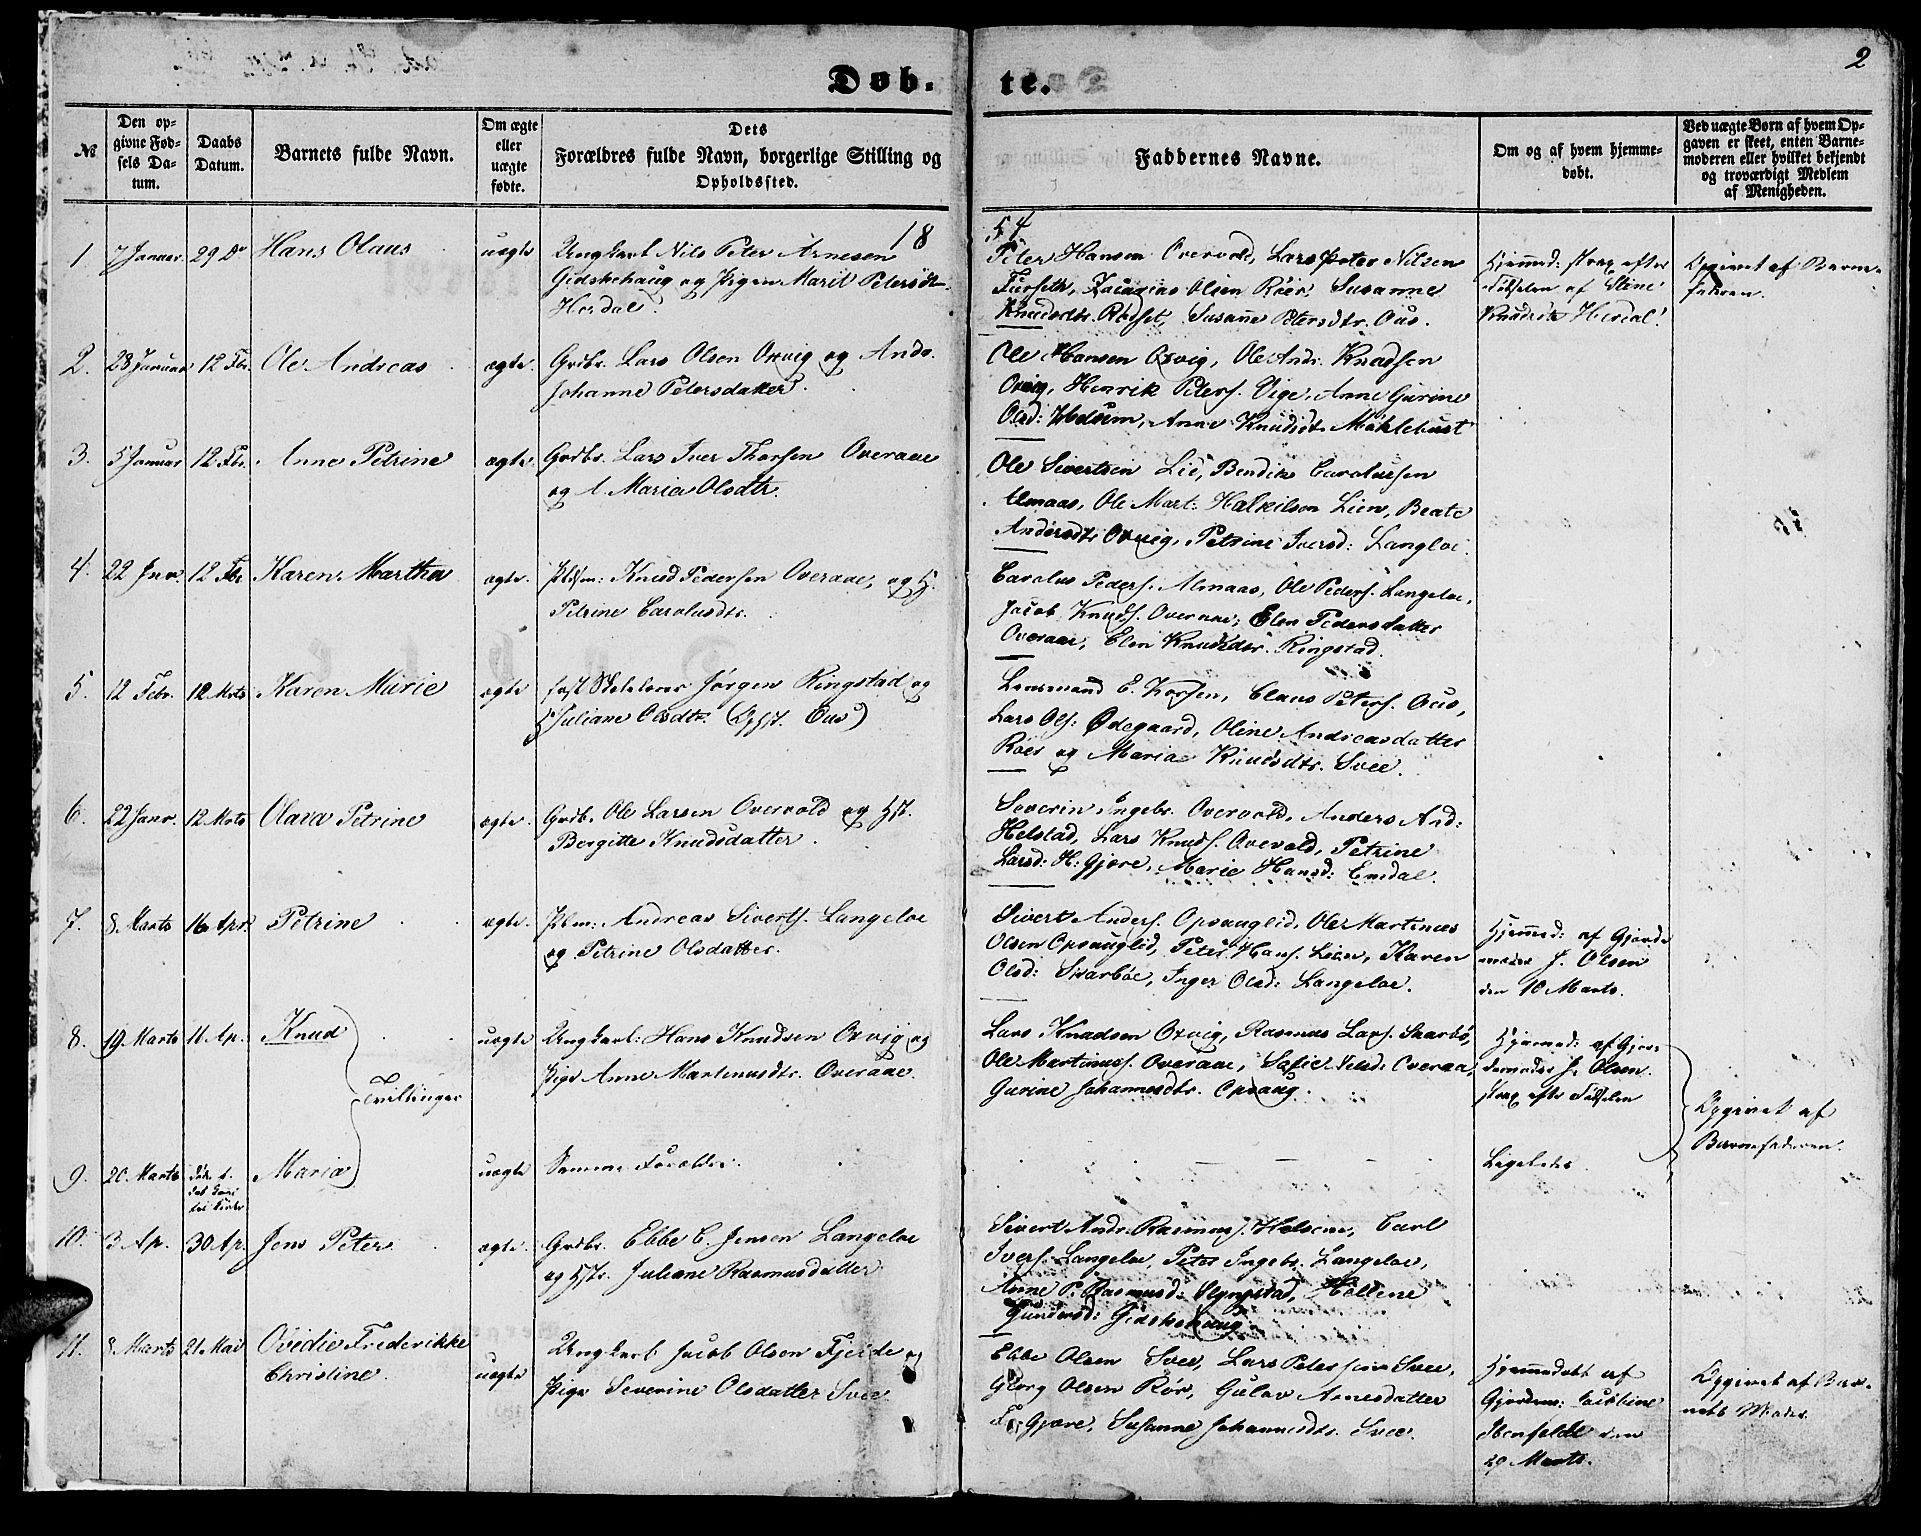 2
Døb- te.
№
Den op-
givne Fød-
sels Da-
tum.
Daabs
Datum.
Barnets fulde Navn.
Om ægte
eller
uægte
fødte.
Dets
Forældres fulde Navn, borgerlige Stilling og
Opholdssted.
Faddernes Navne.
Om og af hvem hjemme-
døbt.
Ved uægte Børn af hvem Op-
gaven er skeet, enten Barne-
moderen eller hvilket bekjendt
og troværdigt Medlem
af Menigheden.
18 54
1 7 Januar 29 Do Hans Olaus uægte Ungkarl Nils Peter Arnesen
Gidskehaug og Pigen Marit Petersdtr
Herdal
Peter Hansen Overvold, Lars Peter Nilsen
Furseth, Zacarias Olsen Röer, Susanne
Knudsdtr. Rödset, Susanne Petersdtr. Ous.
Hjemmed: strax efter
Födselen af Stine
Knudsdtr Herdal.
Opgivet af Barne-
faderen.
2. 28 Januar 12 Fbr. Ole Andreas ægte. Grdbr. Lars Olsen Orvig og Ands.
Johanne Petersdatter.
Ole Hansen Orvig, Ole Andr. Knudsen
Orvig, Henrik Peters. Vige, Anne Gurine
Olsd: Hedsem, Anne Knudsdt. Mÿklebust
3. 5 Januar 12 Fbr. Anne Petrine ægte Grdbr. Lars Iver Thorsen Overaae
og Maria Olsdtr.
Ole Sivertsen Lid, Bendik Carolussen
Almaas, Ole Mart: Halkilson Lien, Beate
Andersdtr Orvig, Petrine Iversd: Langloe.
4. 22 Jnr. 12 Fbr Karen Martha ægte. Pldsm: Knud Pedersen Overaae, og H.
Petrine Carolusdtr.
Carolus Peders. Almaas, Ole Peders. Langeloe,
Jacob Knuds. Overaae, Elen Pedersdatter
Overaae, Elen Knudsdtr. Ringstad.
5. 12 Febr. 12 Mrts Karen Marie ægte fast Skolelærer Jörgen Ringstad og
H Juliane Olsdtr. (Ous)
Lensmand E. Korsen, Claus Peters. Ous,
Lars Ols: Ødegaard, Oline Andreasdatter
Röer og Maria Knudsdtr. Svee.
6. 22 Janr. 12 Mrts Olava Petrine ægte. Grdb. Ole Larsen Overvold og Hst.
Bergitte Knudsdatter.
Severin Ingebr. Overvold, Anders And:
Helstad, Lars Knuds. Overvold, Petrine
Larsd: H: Gjære, Marie Hansd: Emdal.
7. 8. Marts 16 Apr. Petrine ægte. Plm: Andreas Siverts. Langeloe
og Petrine Olsdatter.
Sivert Anders. Opsauglid, Ole Martinus
Olsen Opsauglid, Peter Hans. Lien, Karen
Olsd: Skarböe, Inger Olsd: Langeloe.
Hjemmed: af Gjorde
moder J. Olsen
den 10 Marts.
8. 19 Marts 11 Ap. Knud uægte Ungkarl: Hans Knudsen Orvig og
Pige Anne Martinusdtr. Overaae.
Tvillinger
Lars Knudsen Orvig, Rasmus Lars. Skarbö,
Ole Martinuss. Overaae, Sofie Overaa,
Gurine Johannesdtr. Opsaug.
Hjemmed: af Gjor-
demoder J. Olsen
strax efter Födselen
Opgivet af
Barnefaderen.
9. 20. Marts Maria uægte Samme Forældre.
Ligeledes
10. 3 Ap. 30 Ap. Jens Peter ægte. Grdbr. Ebbe C. Jensen Langeloe
og Hstr. Juliane Rasmusdatter
Sivert Andr. Rasmus. Helsem, Carl
Ivers. Langeloe, Peter Ingebr. Langeloe,
Anne P. Rasmusd: Slyngstad, Hellene
Gundersd: Gidskehaug.
11. 8 Marts 21 Mai Ovidie Frederikke
Christine. uægte Ungkarl Jacob Olsen Fjelde og
Pige Severine Olsdatter Svee
Ebbe Olsen Svee, Lars Petersen Svee,
Georg Olsen Rör, Gulav Arnesdatter
Gjære, Susanne Johannesdtr. Svee.
Hjemmedöbt af
Gjordem: Jacobine
Stenfeldt den
29 Marts.
Opgivet af Bar-
nets Moder.